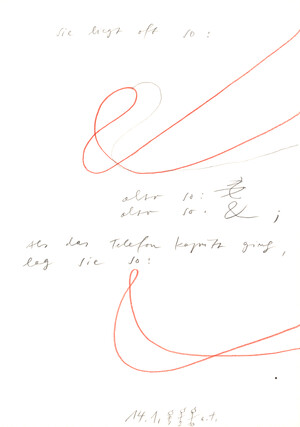 sie liegt oft so:
also so:
also so. & ;
Als das Telefon kaputt ging,
lag sie so:
14.1.